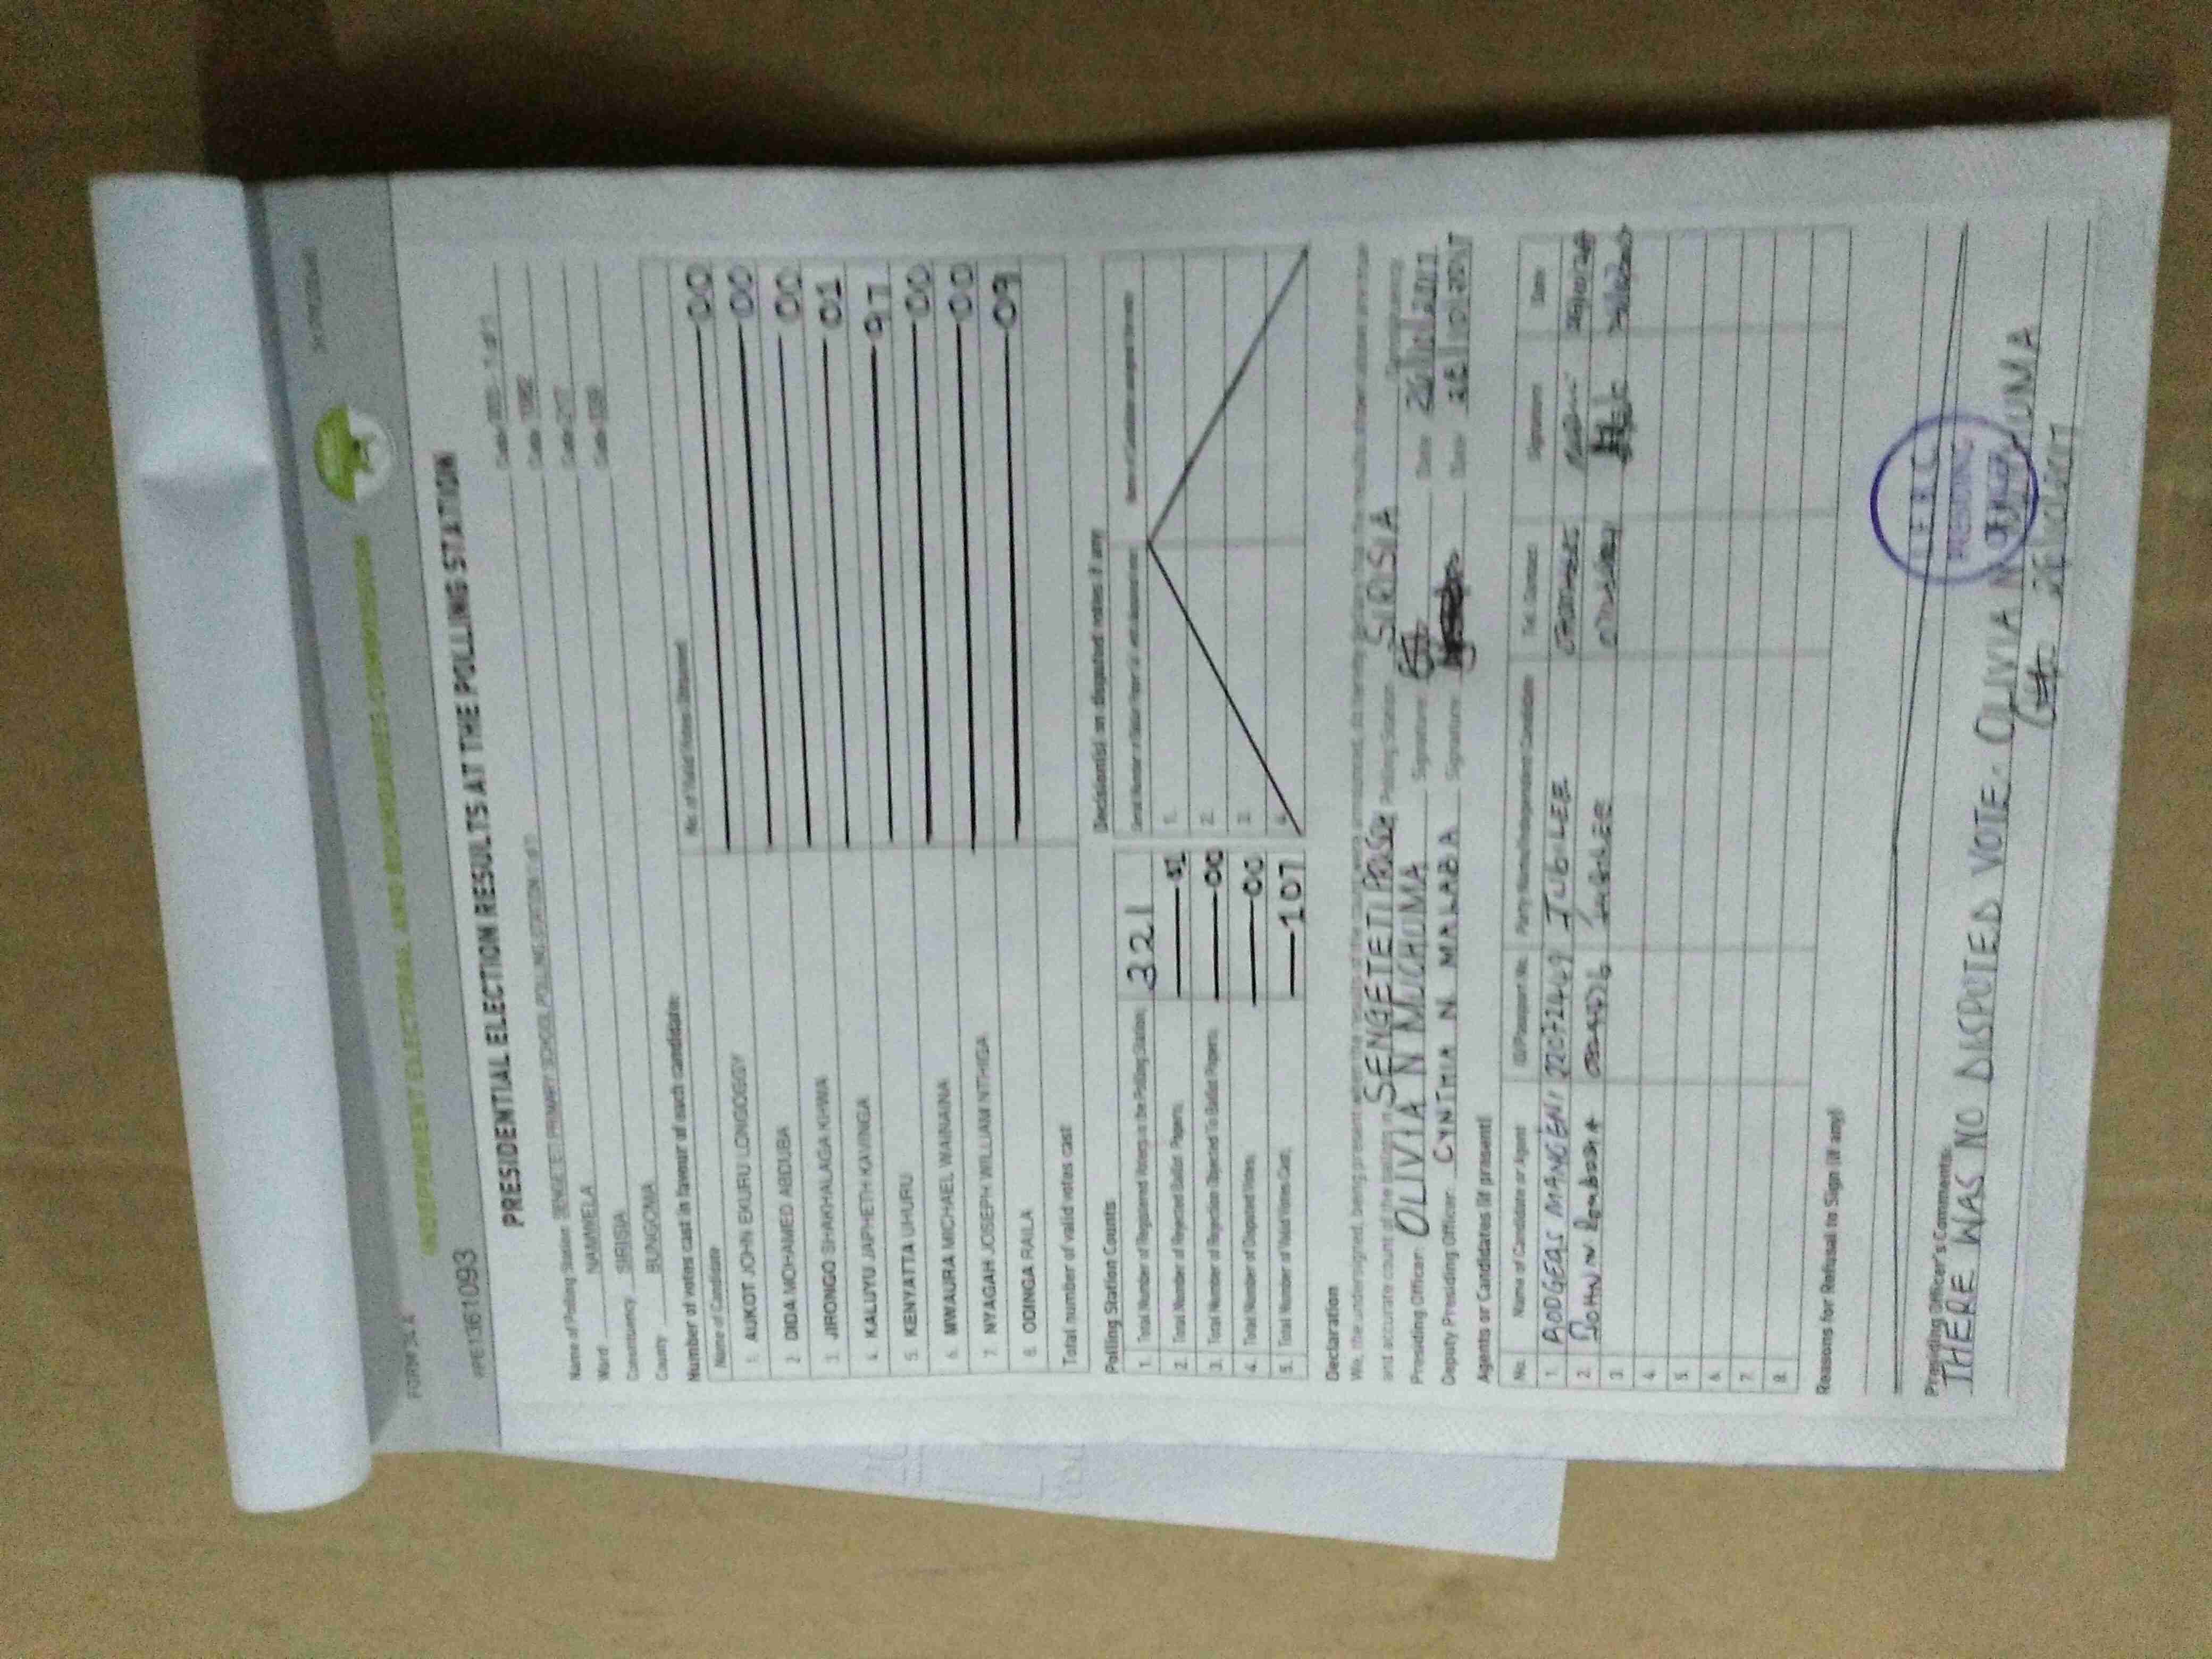 FORM 34 A
INDEPENDENT ELECTORAL AND BOUNDARIES COMMISSION
PRESIDENTIAL ELECTION RESULTS AT THE POLLING STATION
Name of Polling Station SENGETETI PRIMARY SCHOOL POLLING STATION 1 of 1
Ward NAMWELA
Constituency SIRISIA Code 217
County BUNGOMA Code 039
Number of votes cast in favour of each candidate:
Name of Candidate No. of Valid Votes Obtained
1. AUKOT JOHN EKURU LONGOGGY 00
2. DIDA MOHAMED ABDUBA 00
3. JIRONGO SHAKHALAGA KHWA 00
4. KALUYU JAPHETH KAVINGA 01
5. KENYATTA UHURU 97
6. MWAURA MICHAEL WAINAINA 00
7. NYAGAH JOSEPH WILLIAM NTHIGA 00
8. ODINGA RAILA 09
Total number of valid votes cast
Polling Station Counts
1. Total Number of Registered Voters in the Polling Station: 321
2. Total Number of Rejected Ballot Papers:
3. Total Number of Rejection Objected To Ballot Papers: 00
4. Total Number of Disputed Votes: 00
5. Total Number of Valid Votes Cast: 107
Decision(s) on disputed votes if any
1.
2.
3.
4.
Declaration
We, the undersigned, being present when the results of the count were announced, do hereby declare that the results shown above are true
and accurate count of the ballots in SENGETETI Polling Station SIRISIA Constituency
Presiding Officer: OLIVIA N MUCHUMA Signature Date 26/10/2017
Deputy Presiding Officer: CYNTHIA N. MALABA Signature Date 26/10/2017
Agents or Candidates (if present)
No. Name of Candidate or Agent ID/Passport No. Party Name/Independent Candidate Tel. Contact Signature Date
1. RODGERS MANGENI 22072449 JUBILEE
2. JOHN JUBILEE
3.
4.
5.
6.
7.
8.
Reasons for Refusal to Sign (if any)
Presiding Officer's Comments:
THERE WAS NO DISPUTED VOTE. OLIVIA N MUCHUMA
26/10/2017
I E B C
PRESIDING
OFFICER